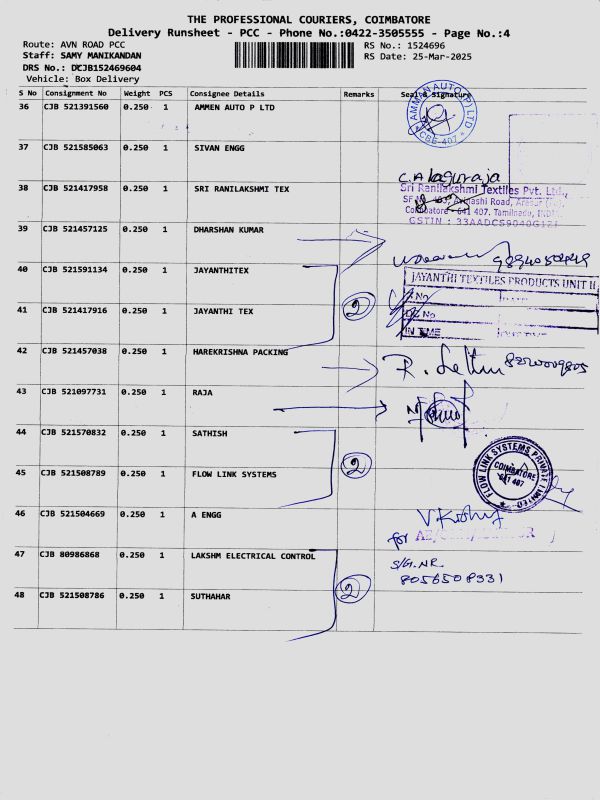 THE PROFESSIONAL COURIERS, COIMBATORE
Delivery Runsheet - PCC - Phone No.:0422-3505555 - Page No.:4
Route: AVN ROAD PCC
RS No.: 1524696
Staff: SAMY MANIKANDAN
RS Date: 25-Mar-2025
DRS No.: DCJB152469604
Vehicle: Box Delivery
S No Consignment No Weight PCS Consignee Details Remarks Seal & Signature
36 CJB 521391560 0.250 1 AMMEN AUTO P LTD
AMMAN AUTO (P) LTD
CBE-407
37 CJB 521585063 0.250 1 SIVAN ENGG
C. Alaguraja
38 CJB 521417958 0.250 1 SRI RANILAKSHMI TEX
Sri Ranilakshmi Textiles Pvt. Ltd.,
Coimbatore - 641 407. Tamilnadu,
39 CJB 521457125 0.250 1 DHARSHAN KUMAR
40 CJB 521591134 0.250 1 JAYANTHITEX
JAYANTHI TEXTILES PRODUCTS UNIT II
2
41 CJB 521417916 0.250 1 JAYANTHI TEX
IN TIME
42 CJB 521457038 0.250 1 HAREKRISHNA PACKING
43 CJB 521097731 0.250 1 RAJA
44 CJB 521570832 0.250 1 SATHISH
FLOW LINK SYSTEMS PRIVATE LIMITED
COIMBATORE
641 407
2
45 CJB 521508789 0.250 1 FLOW LINK SYSTEMS
46 CJB 521504669 0.250 1 A ENGG
for
47 CJB 80986868 0.250 1 LAKSHM ELECTRICAL CONTROL
S/G. NR.
8056508331
2
48 CJB 521508786 0.250 1 SUTHAHAR